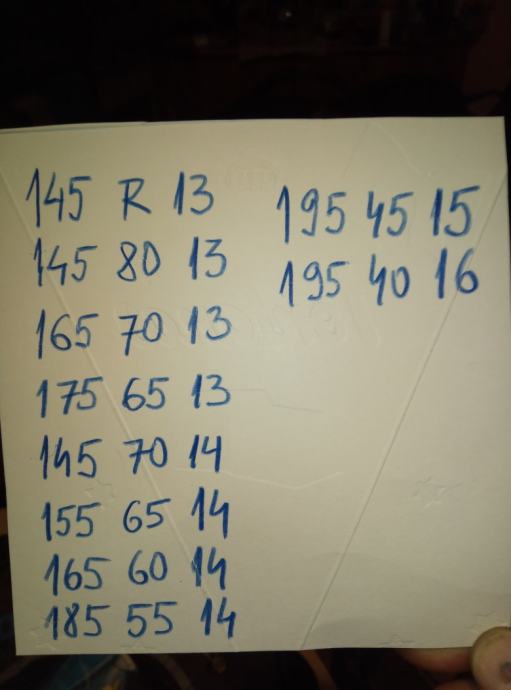 145 R 13
145 80 13
165 70 13
175 65 13
145 70 14
155 65 14
165 60 14
185 55 14
195 45 15
195 40 16